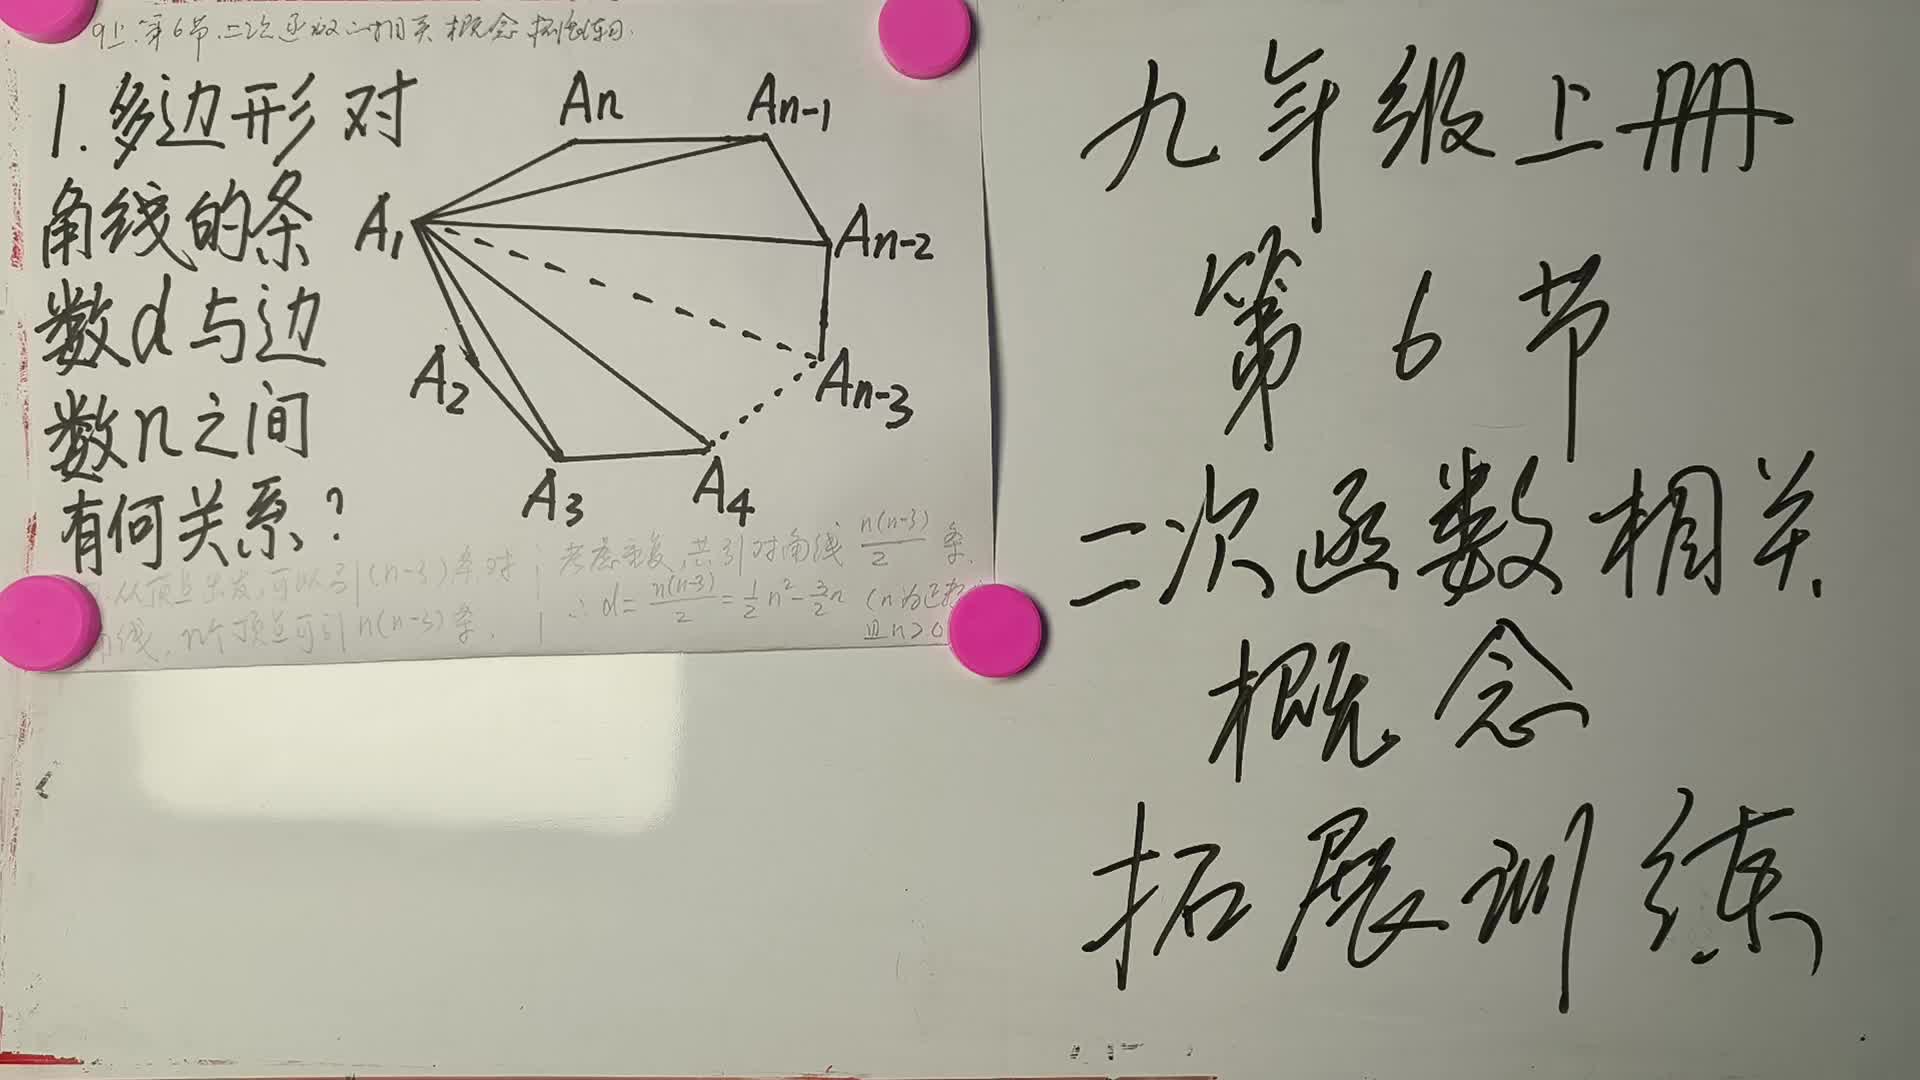 9上.第6节.二次函数的相关概念拓展练习.
1.多边形对
角线的条
数d与边
数n之间
有何关系?
An
An-1
A1
An-2
A2
An-3
A3
A4
从顶点出发,可以引(n-3)条对
角线,n个顶点可引n(n-3)条.
考虑重复,共引对角线 n(n-3)/2 条.
∴ d= n(n-3)/2 = 1/2 n² - 3/2 n (n为正整
且n>0
九年级上册
第6节
二次函数相关
概念
拓展训练